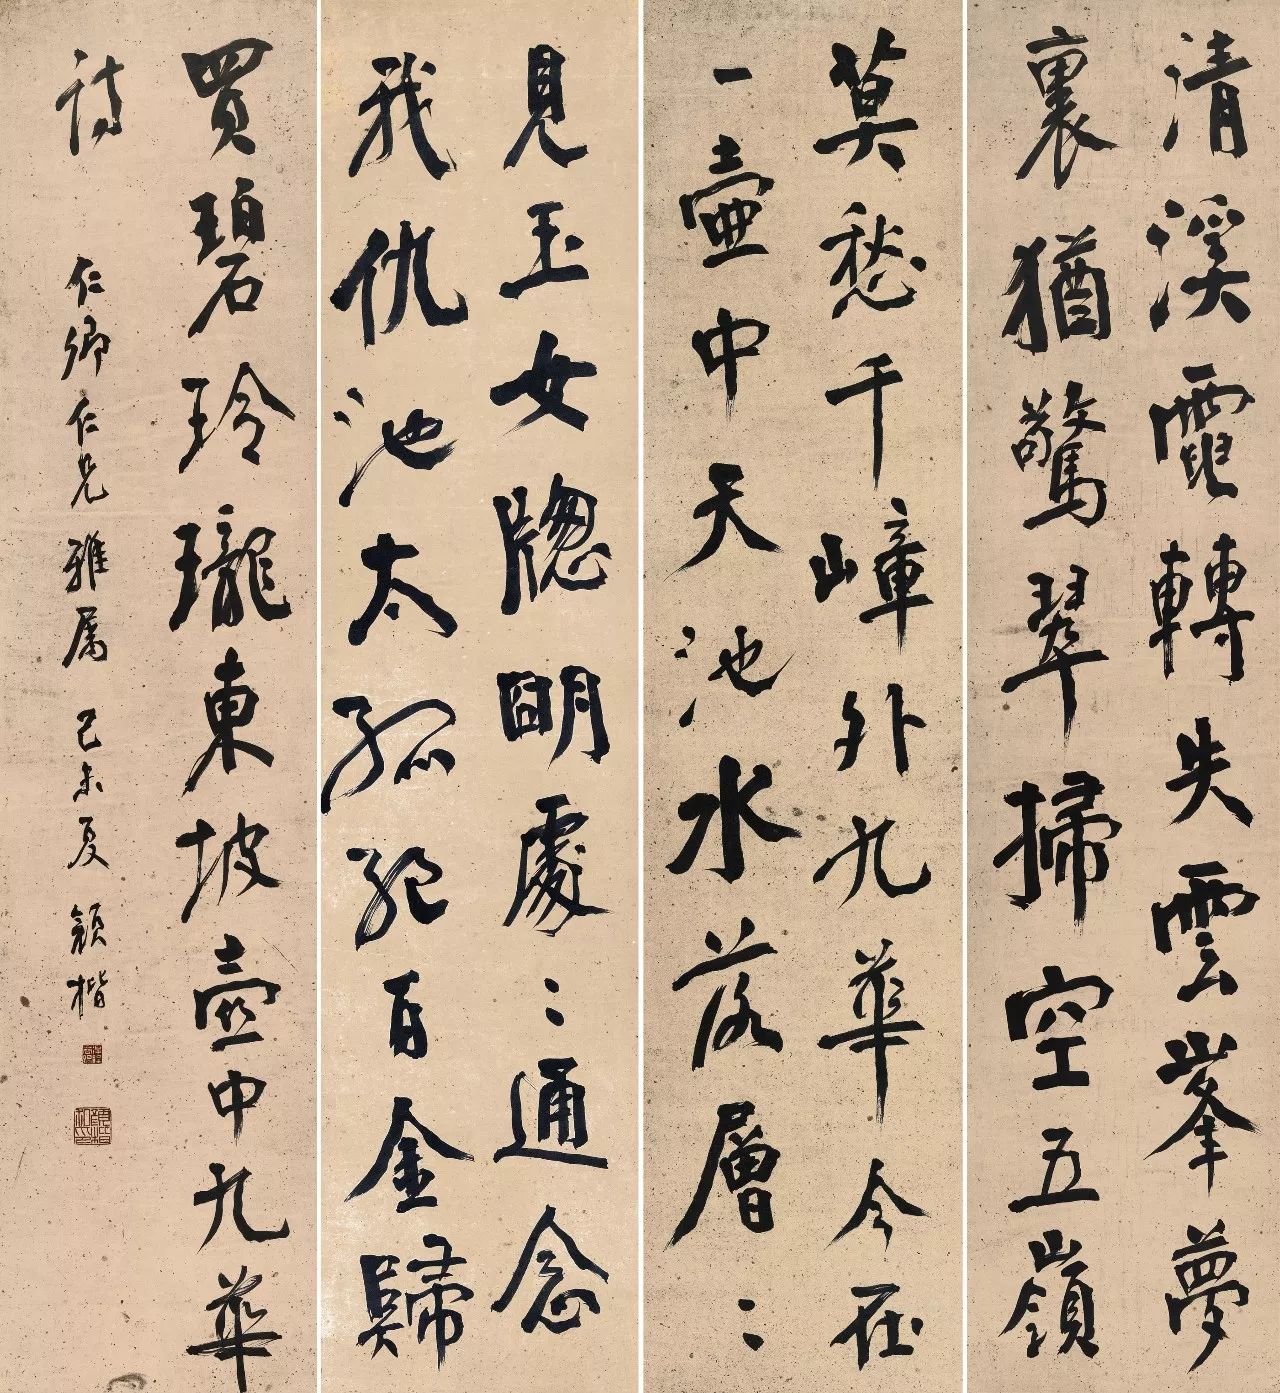 清溪電轉失雲峯夢
裏猶驚翠掃空五嶺
莫愁千嶂外九華今在
一壺中天池水落層〻
見玉女牕明處〻通念
我仇池太孤絕百金歸
買碧玲瓏東坡壺中九華
詩 仁卿仁兄雅屬 己未夏 穎楷